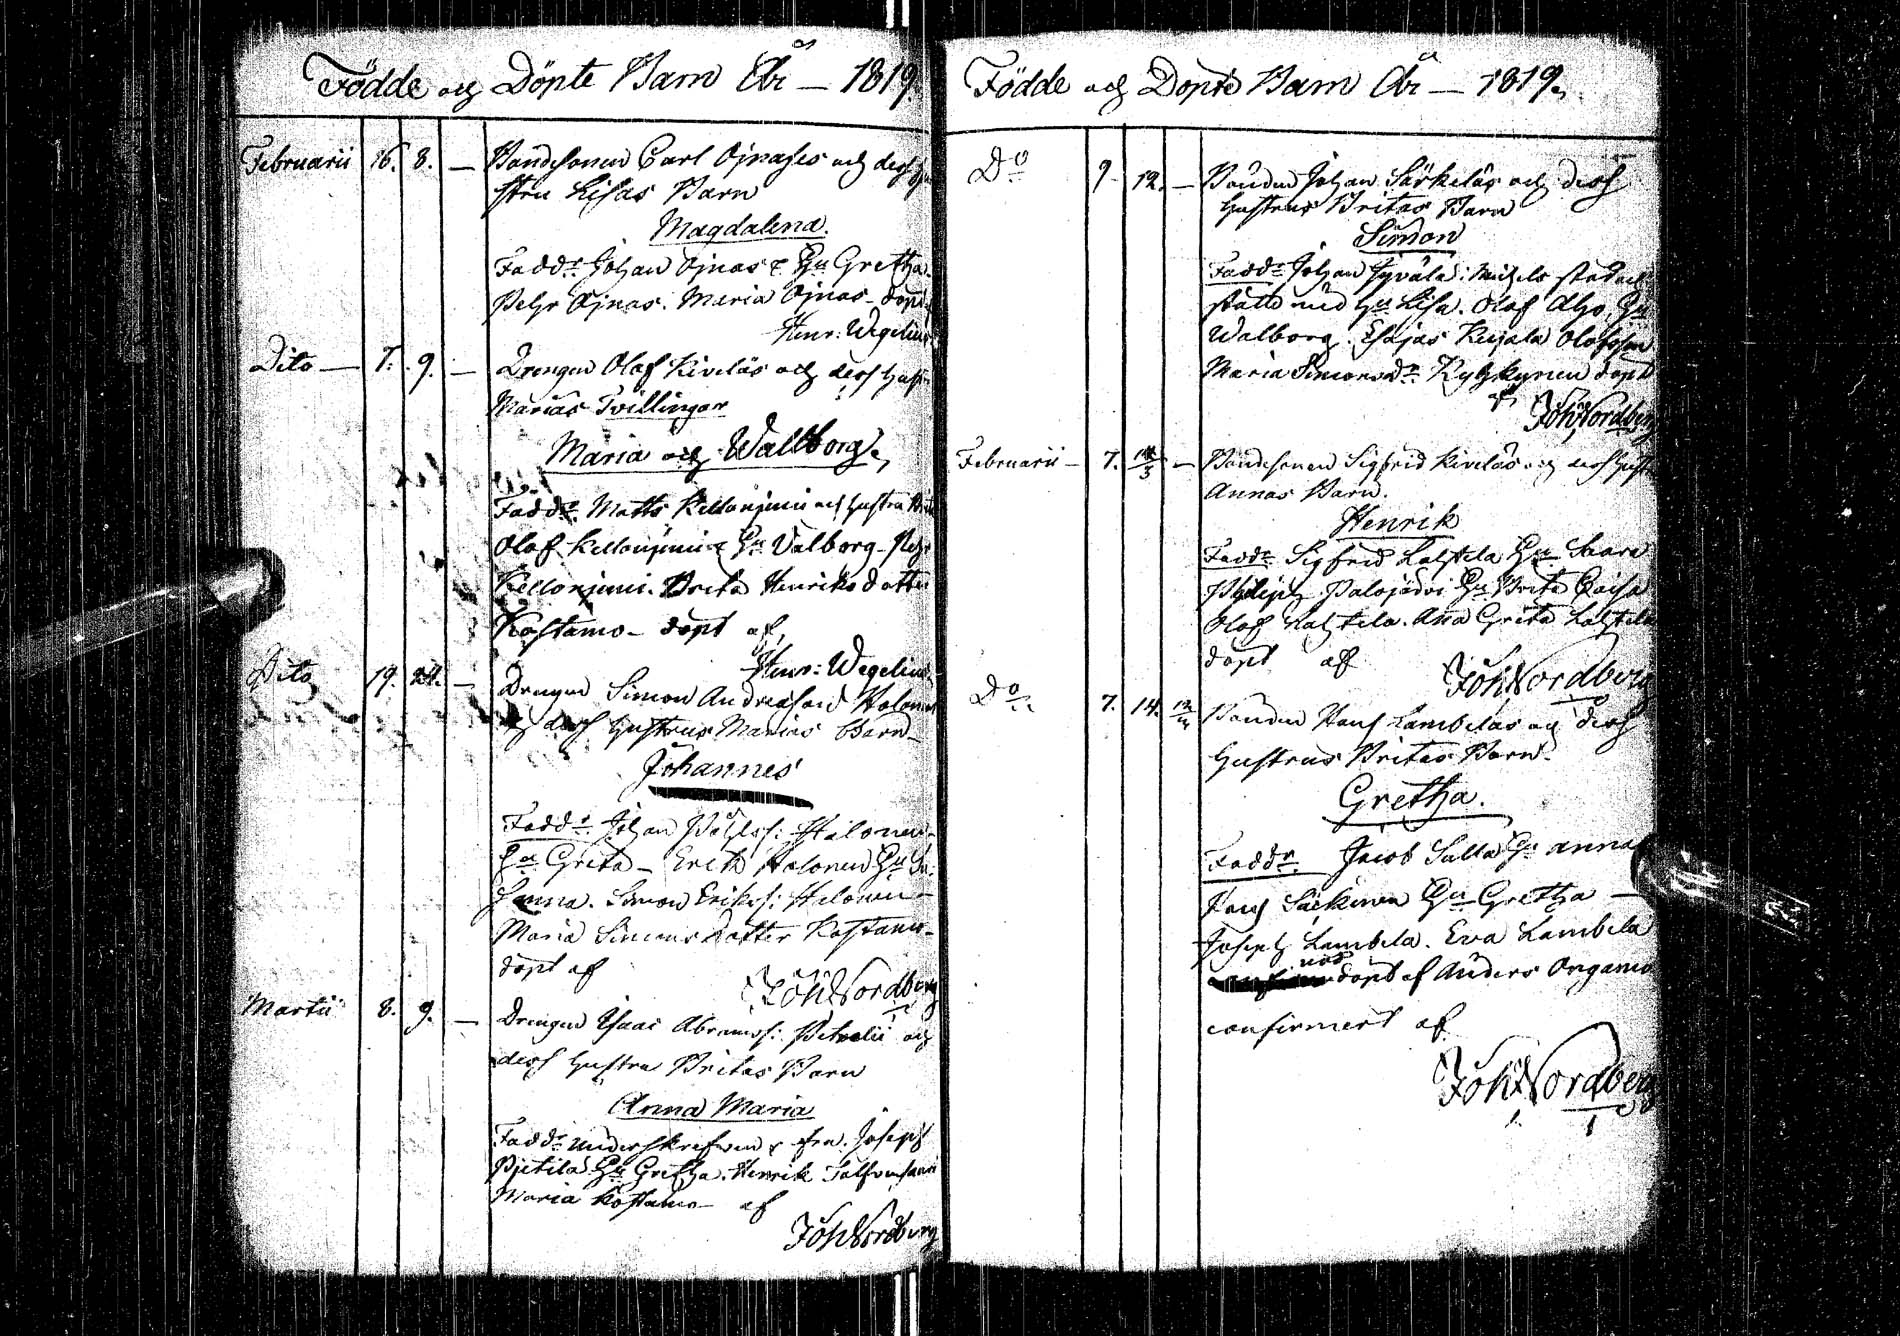 Födde och Döpte Barn År — 1819.
Februarii 16. 8. — Bondesonen Carl Ojnases och dess Hu
stru Lisas Barn
Magdalena.
Faddr Johan Ojnas & Hu Gretha.
Pehr Ojnas. Maria Ojnas - döpt af
Henr: Wegelius
Dito — 7. 9. — Drengen Olof Kiveläs och dess Hustru
Marias Tvillingar
Maria och Wallborg.
Faddr Matts Kellonjemi och Hustra
Olof Kellonjemi & Hu Valborg - Pehr
Kellonjemi. Brita Henriks dotter
Kostamo - döpt af
Henr: Wegelius
Dito 19. 24. — Drengen Simon Andreasson Halonen
och dess Hustrus Marias Barn
Johannes
Faddr Johan Påhlss: Halonen
Hu Greta - Erik Halonen Hu Su-
sanna. Simon Erikss: Halonen
Maria Simons dotter Kostamo
döpt af
Joh Nordberg
Martii 8. 9. — Drengen Isaac Abramss: och
dess Hustru Britas Barn
Anna Maria
Faddr underskrefven & fru. Joseph
Pjetilä Hu Gretha. Henrik
Maria Kostamo - af
Joh Nordberg
Födde och Döpte Barn År — 1819.
Do 9. 12. — Bonden Johan Särkeläs och dess
Hustrus Britas Barn
Simon
Faddr Johan Hyvälä: Michels
med Hu Lisa. Olof Aho, Hu
Walborg. Eskjas Kujala Olofsson
Maria Simonsdr Kyhkynen döpt
af Joh Nordberg
Februarii — 7. — Bondesonen Sigfrid Kiveläs och dess Hustru
Annas Barn.
Henrik
Faddr Sigfrid Lahtela Hu Saara
Philiph Palojärvi Hu Brita Caisa
Olof Lahtela. Ana Greta Lahtela
döpt af
Joh Nordberg
Do 7. 14. Bonden Hans Lambelas och dess
Hustrus Britas Barn
Gretha.
Faddr. Jacob Salla Hu Anna
Hans Säckinen Hu Gretha —
Joseph Lambela. Eva Lambela
nöd döpt af Anders Onganio
confirmert af
Joh Nordberg